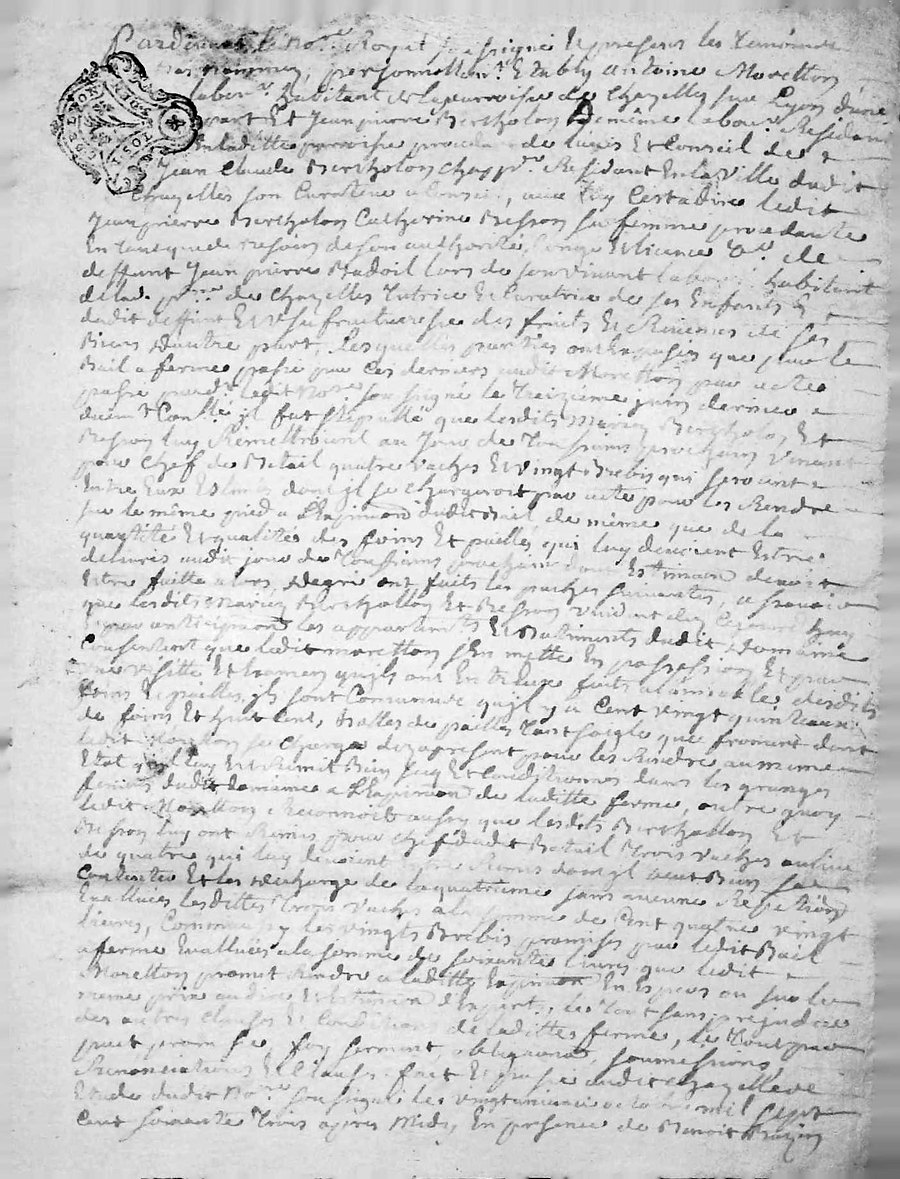 Pardevant le No.re Royal soussigné et presens les temoins
bas nommez, personnellem.t Etably antoine Moretton
labou.r habitant de la parroisse de Chazelles sur Lyon d'une
part Et Jean pierre Berthollon de même labour. Residant
En laditte parroisse procedant de l'avis Et Conseil de
Jean Claude Berthollon Chapp.er Residant En la Ville dudit
Chazelles son Curateur a Conseil, avec luy ledit
Jean pierre Berthollon Catherine Besson sa femme procedante
En tant que de besoin de son authorité, Conge Et licence V.e de
deffunt Jean pierre Badoil lors de son vivant labour. habitant
de lad. p.sse de Chazelles Tutrice Et Curatrice de ses Enfants &
dudit deffunt Et Usufruitieresse des fruits Et Revenus de ses
Biens d'autre part, lesquelles parties ont Exposés que par le
Bail a ferme passé par Ces derniers audit Moretton par acte
passé pard.t ledit No.re soussigné le Treizieme juin dernier
il fut stipullé que lesdits Mariez Berthollon Et
Besson luy Remettroient au Jour de Toussaints prochain venant
pour Chef de Betail quatre vaches Et Vingt Brebis qui seroient
Entre Eux Estimés dont il se Chargeroit par acte pour les Rendre
sur le même pied a L'Expiration dudit Bail, de même que de la
quantité Et qualité des foins Et pailles, qui luy devoient Estre
delivrés audit jour de Toussaints prochain dont Estimation devoit
Estre faitte alors, De gré ont faits les paches suivantes, a sçavoir
que lesdits Mariez Berthollon Et Besson
par anticipation les appartements Et Batiments dudit Domaine
Consentent que ledit Moretton s'En mette En possession Et par
une visitte Et Examen qu'ils ont Entr'Eux faits a l'amiable desdits
foins Et pailles, ils sont Convenus qu'il y a Cent vingt quintaux
de foins Et huit Cent, Balles de pailles Tant seigle que froment dont
ledit Moretton se Charge dez a present pour les Rendre au meme
Etat qu'il luy En Remit Bien secq Et Conditionnes dans les granges
fenieres dudit Domaine a L'Expiration de laditte ferme, outre quoy
ledit Moretton Reconnoit aussy que lesdits Berthollon Et
Besson luy ont Remis pour Chef dudit Betail Trois vaches au lieu
de quatre qui luy devoient Estre Remis dont il veut Bien se
Contenter Et les décharge de la quatrieme sans aucune Repetition
Evalluées lesdittes Trois vaches a la somme de Cent quatre vingt
livres, Comme aussy les vingts Brebis promises par ledit Bail
a ferme Evalluées a la somme de soixante livres que ledit
Moretton promet Rendre a laditte Expiration En Especes ou sur le
meme prix au dire Et Estimation d'Expert, le Tout sans prejudice
des autres Clauses Et Conditions de laditte ferme, le Tout par
pact promesse, foy serment, obligations, soumissions,
Renonciations Et Clauses. fait Et passé audit Chazelles
Etude dudit No.re soussigné le vingt octobre mil sept
Cent soixante Trois apres Midi, En presence de Benoit